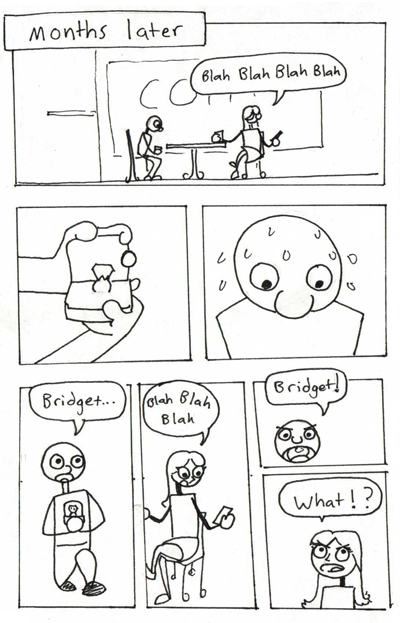 Months later
Blah Blah Blah Blah
Bridget...
Blah Blah
Blah
Bridget!
What!?